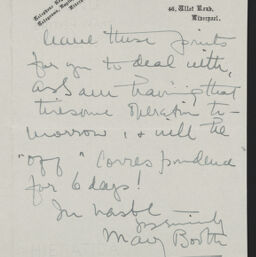 46, Ullet Road,
Liverpool.
leave these points
for you to deal with,
as I am having that
tiresome operation to-
morrow, & will be
"off" correspondence
for 6 days!
In haste
Mary Booth